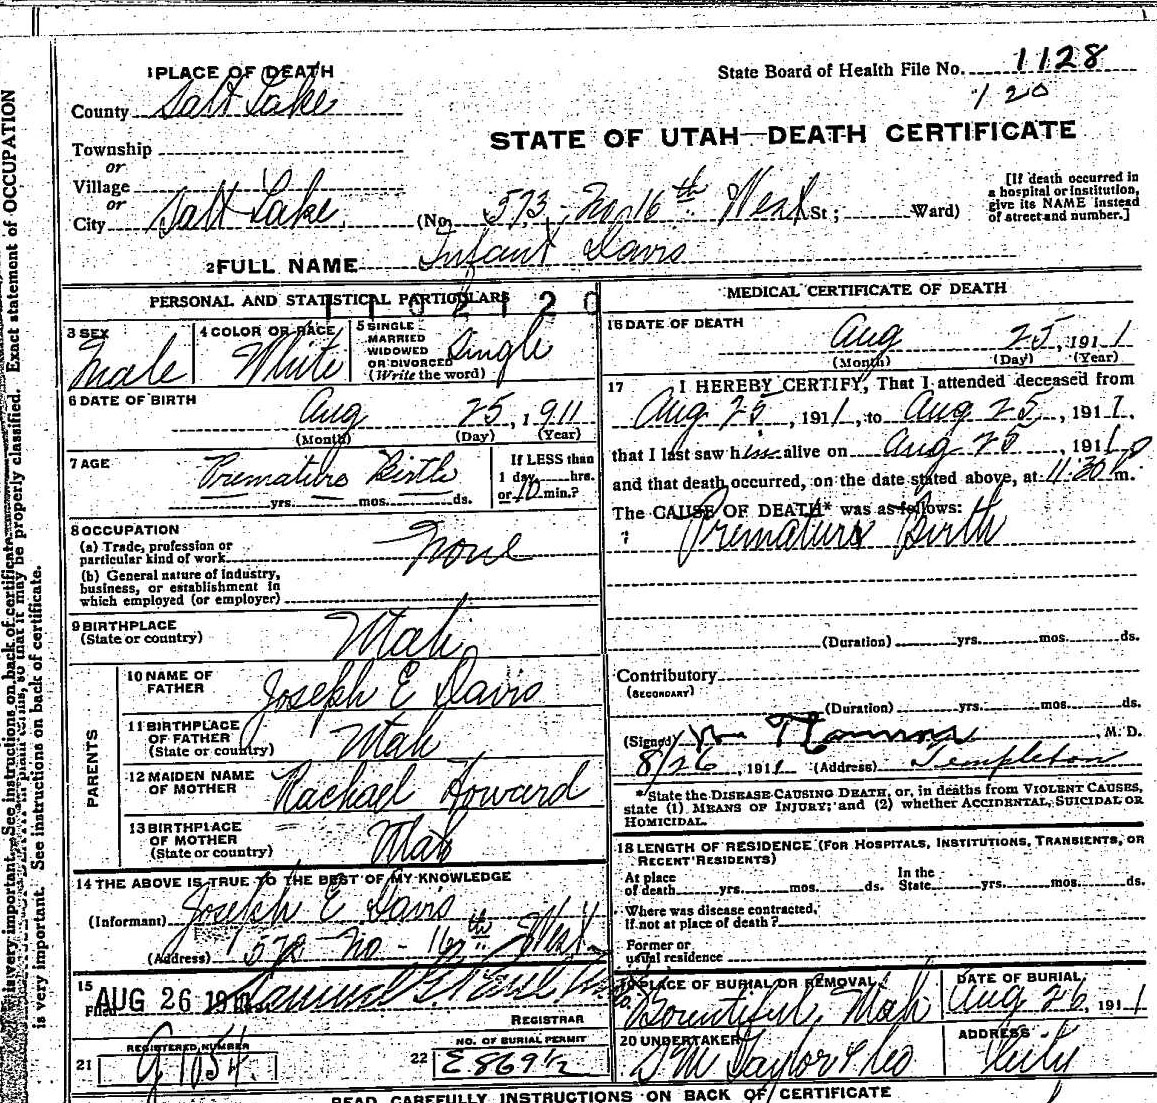 1 PLACE OF DEATH
State Board of Health File No. 1128
120
County Salt Lake
STATE OF UTAH—DEATH CERTIFICATE
Township
or
Village
or
City Salt Lake (No. 573 - No. 16th West St; Ward)
[If death occurred in a hospital or institution, give its NAME instead of street and number.]
2 FULL NAME Infant Davis
PERSONAL AND STATISTICAL PARTICULARS
1102120
3 SEX Male
4 COLOR OR RACE White
5 SINGLE MARRIED WIDOWED OR DIVORCED (Write the word) Single
6 DATE OF BIRTH Aug 25, 1911
(Month) (Day) (Year)
7 AGE Premature Birth
yrs. mos. ds.
If LESS than 1 day hrs. or 10 min.?
8 OCCUPATION
(a) Trade, profession or particular kind of work None
(b) General nature of industry, business, or establishment in which employed (or employer)
9 BIRTHPLACE (State or country) Utah
PARENTS
10 NAME OF FATHER Joseph E Davis
11 BIRTHPLACE OF FATHER (State or country) Utah
12 MAIDEN NAME OF MOTHER Rachael Howard
13 BIRTHPLACE OF MOTHER (State or country) Utah
14 THE ABOVE IS TRUE TO THE BEST OF MY KNOWLEDGE
(Informant) Joseph E Davis
(Address) No - 16th West
15 Filed AUG 26 1911
REGISTRAR
21 REGISTERED NUMBER 1054
22 NO. OF BURIAL PERMIT E 869 1/2
MEDICAL CERTIFICATE OF DEATH
16 DATE OF DEATH Aug 25, 1911
(Month) (Day) (Year)
17 I HEREBY CERTIFY, That I attended deceased from
Aug 25, 1911, to Aug 25, 1911,
that I last saw him alive on Aug 25, 1911
and that death occurred, on the date stated above, at 11:30 P m.
The CAUSE OF DEATH* was as follows:
Premature Birth
(Duration) yrs. mos. ds.
Contributory
(SECONDARY)
(Duration) yrs. mos. ds.
(Signed) , M. D.
8/26, 1911 (Address) Templeton
*State the DISEASE CAUSING DEATH, or, in deaths from VIOLENT CAUSES,
state (1) MEANS OF INJURY; and (2) whether ACCIDENTAL, SUICIDAL OR
HOMICIDAL.
18 LENGTH OF RESIDENCE (FOR HOSPITALS, INSTITUTIONS, TRANSIENTS, OR
RECENT RESIDENTS)
At place of death yrs. mos. ds. In the State yrs. mos. ds.
Where was disease contracted,
if not at place of death?
Former or
usual residence
19 PLACE OF BURIAL OR REMOVAL Bountiful, Utah
DATE OF BURIAL Aug 26, 1911
20 UNDERTAKER S M Taylor & Co
ADDRESS City
READ CAREFULLY INSTRUCTIONS ON BACK OF CERTIFICATE
is very important. See instructions on back of certificate.
so that it may be properly classified. Exact statement of OCCUPATION